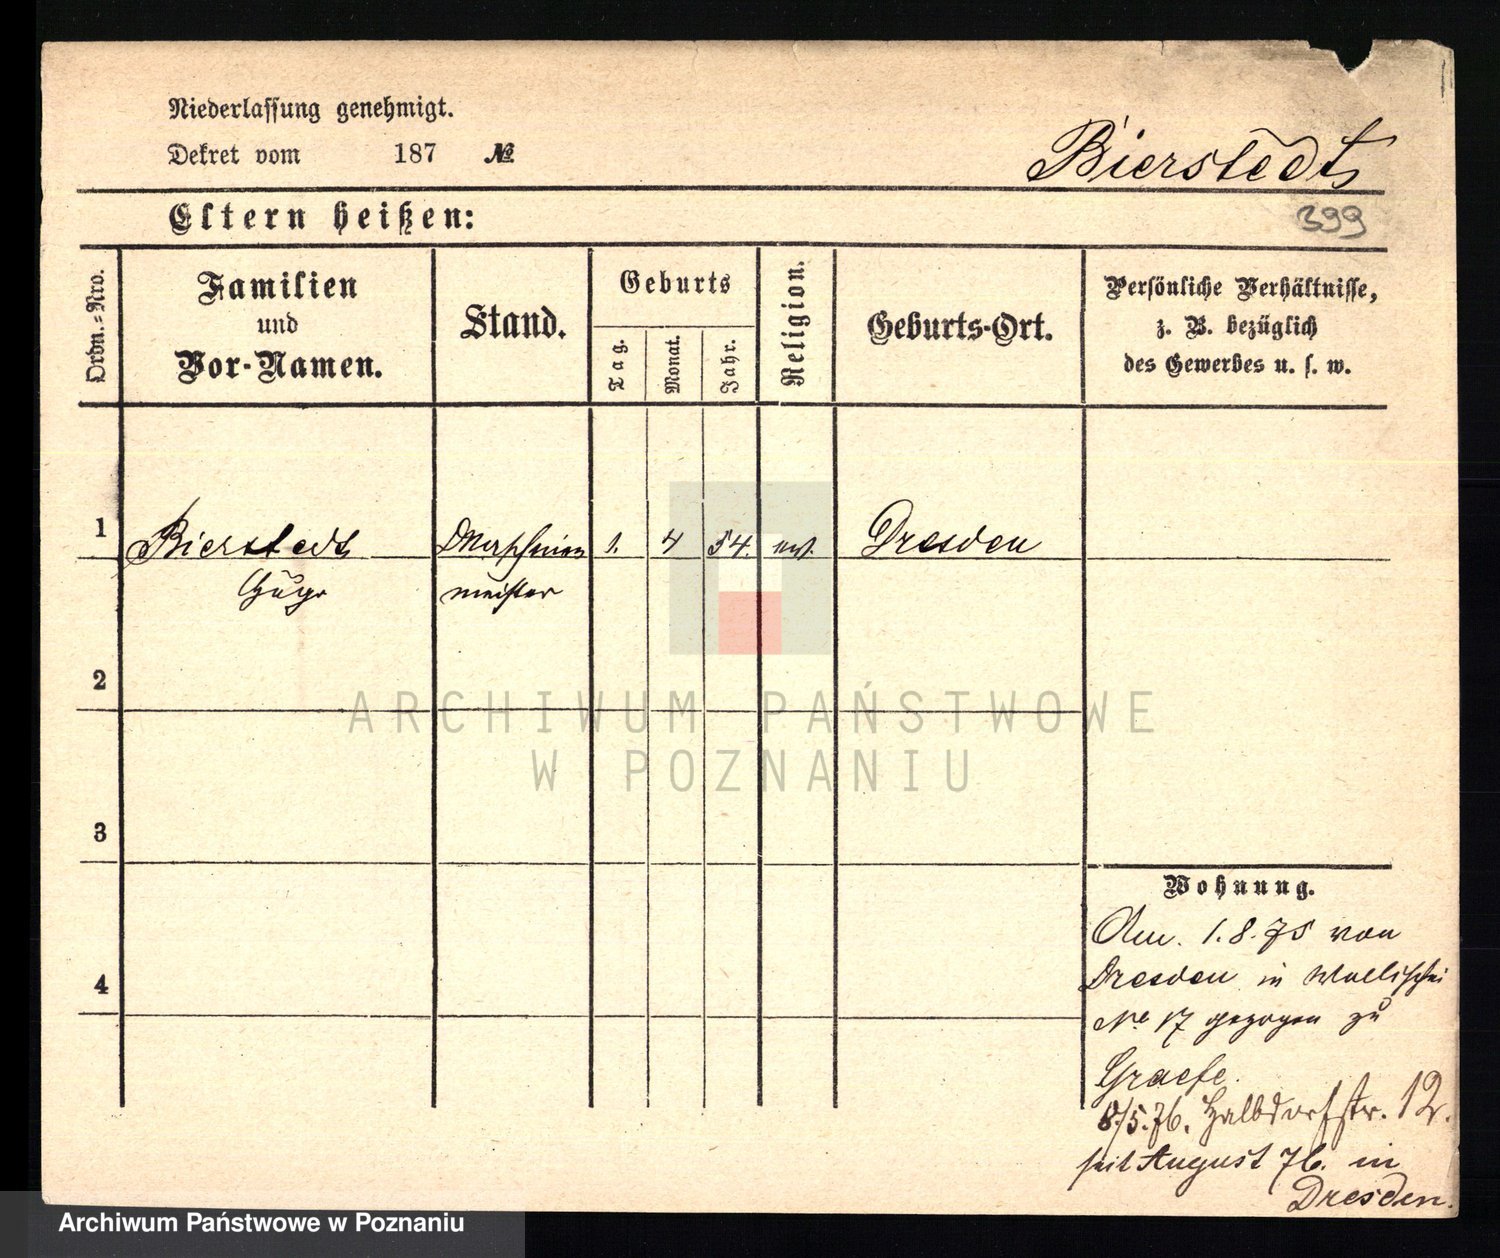 Niederlassung genehmigt.
Dekret vom 187 №
Bierstedt
Eltern heißen:
399
Ordn.-Nro.
Familien
und
Vor-Namen.
Stand.
Geburts
Tag.
Monat.
Jahr.
Religion.
Geburts-Ort.
Persönliche Verhältnisse,
z. B. bezüglich
des Gewerbes u. s. w.
1 Bierstedt Maschinen 1. 4 54. ev. Dresden
Hugo meister
2
ARCHIWUM PAŃSTWOWE
W POZNANIU
3
4
Wohnung.
Am. 1.8.75 von
Dresden in Wallischei
No 17 gezogen zu
Graefe.
8/5.76. Halbdorfstr. 12.
seit August 76. in
Dresden.
Archiwum Państwowe w Poznaniu